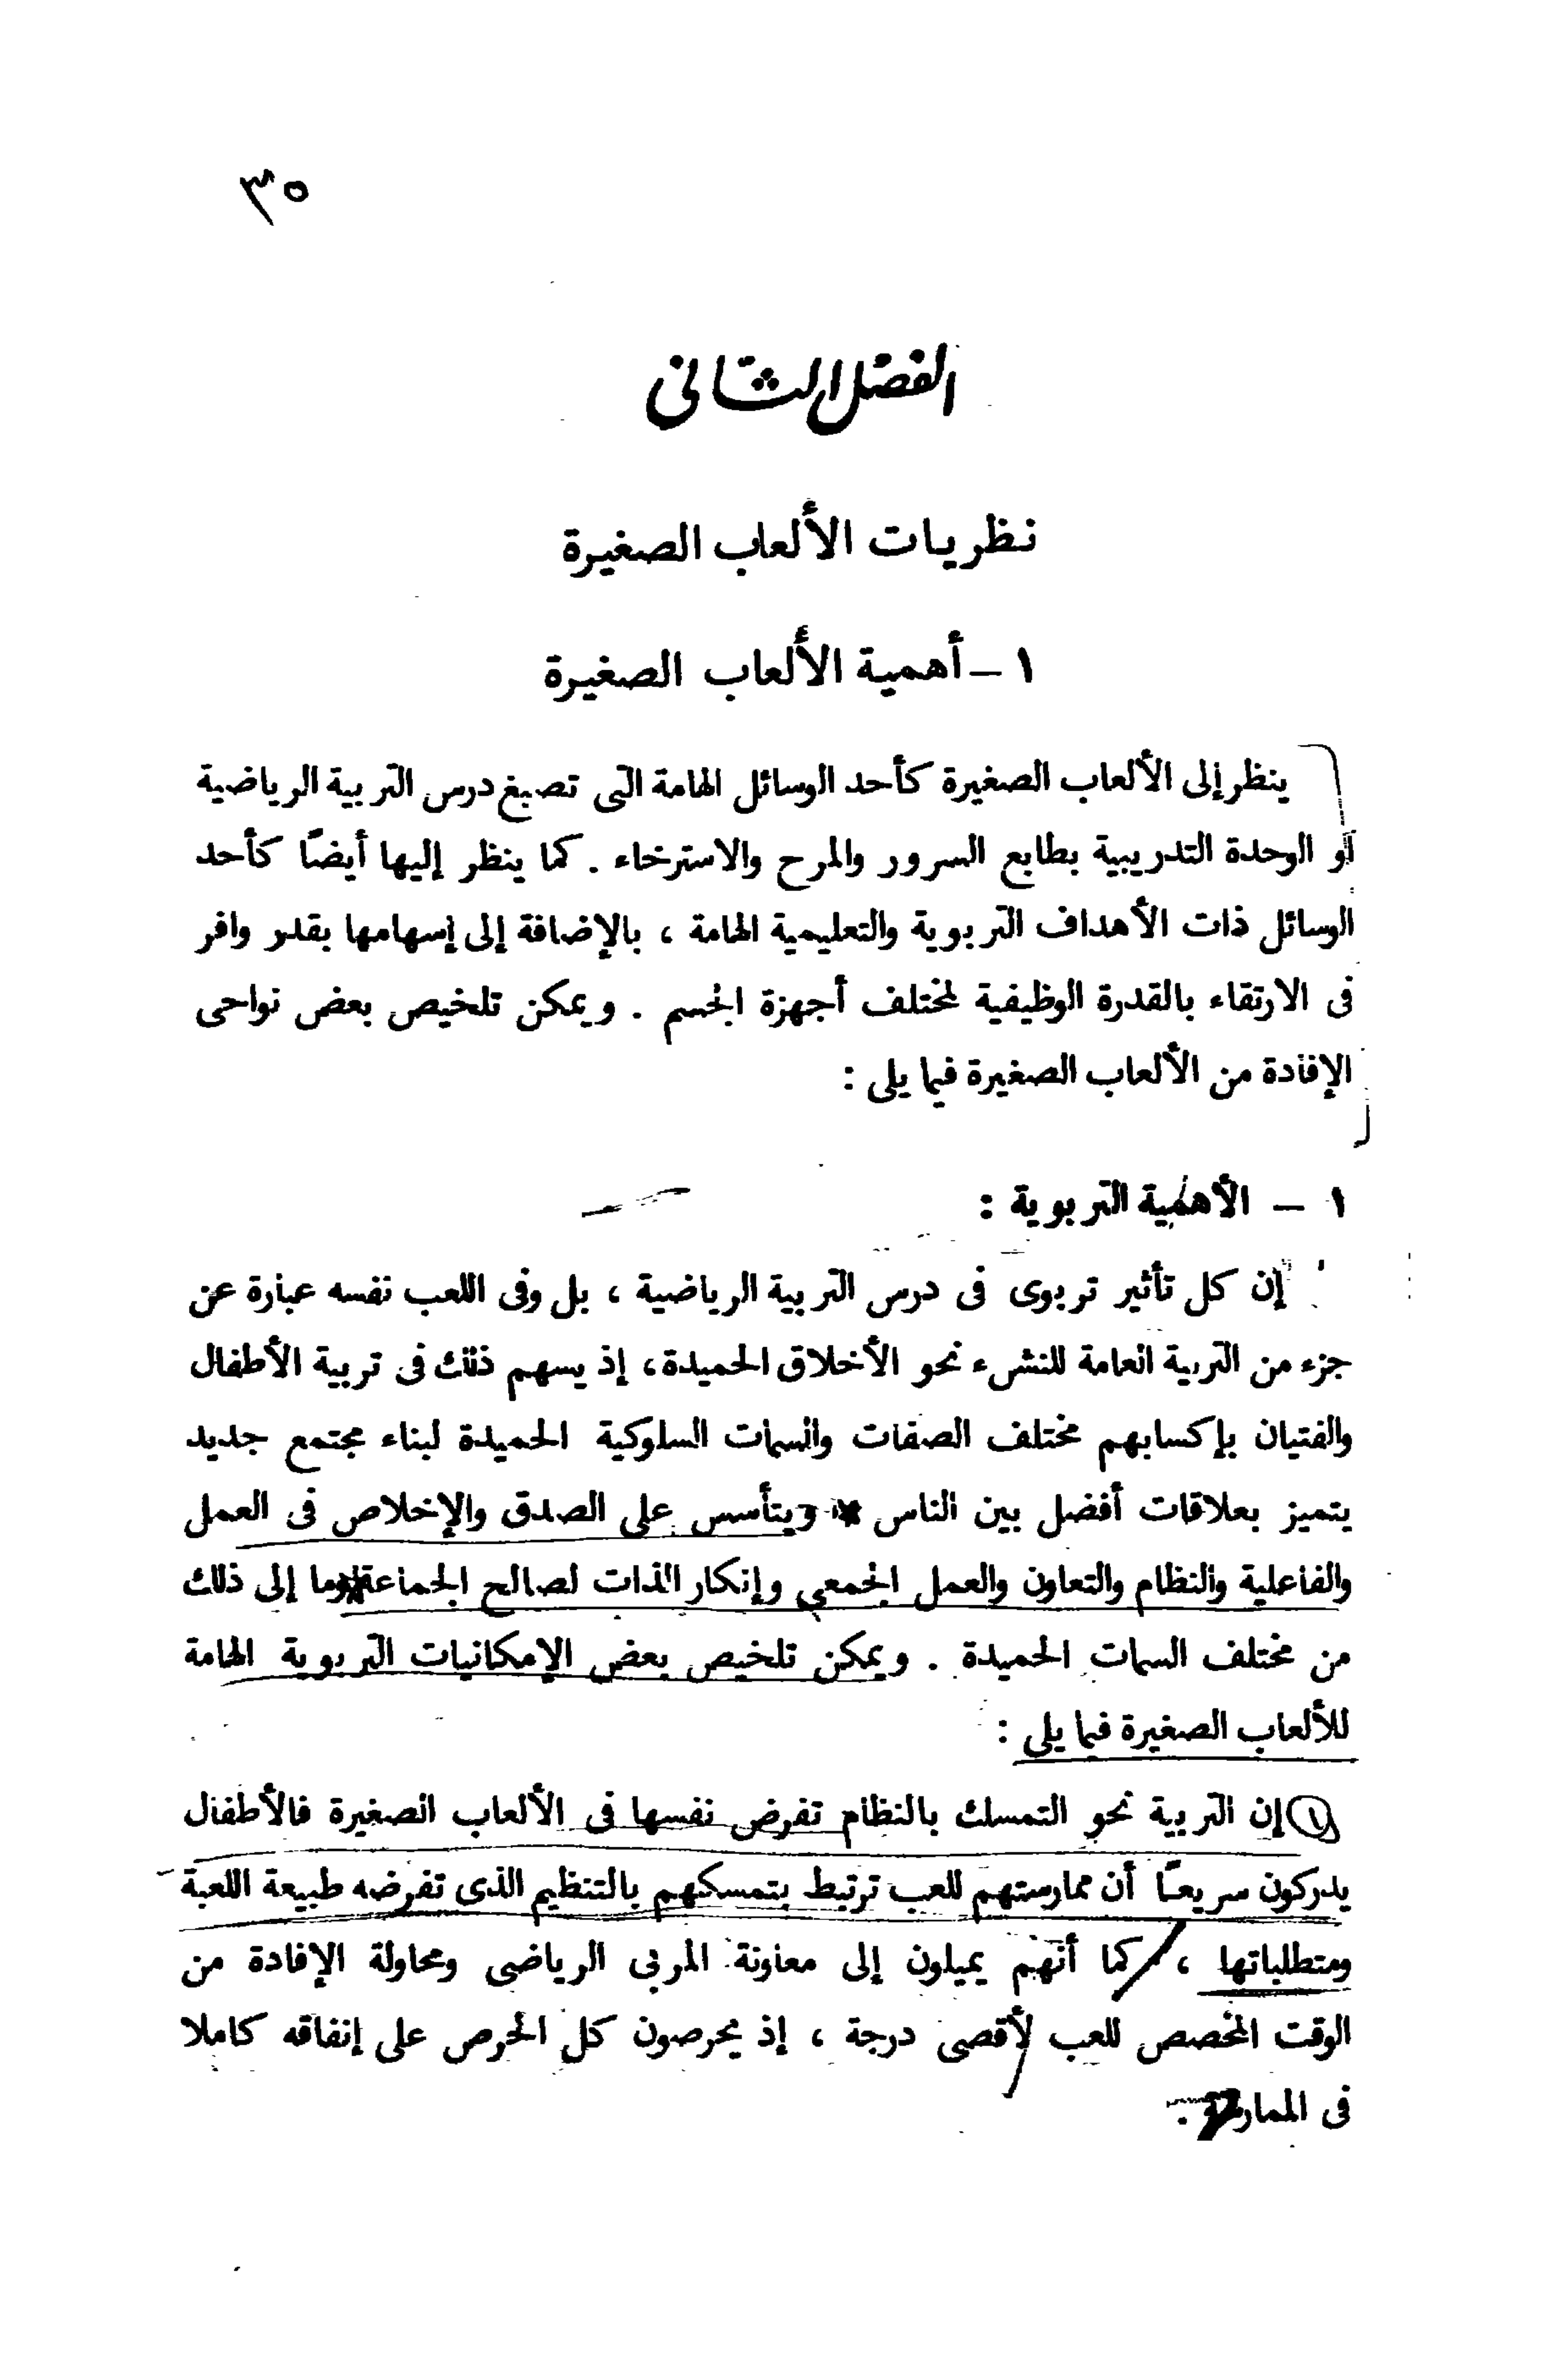 ٣٥
الفصل الثانى
نظريات الألعاب الصغيرة
١ – أهمية الألعاب الصغيرة
ينظر إلى الألعاب الصغيرة كأحد الوسائل الهامة التى تصبغ درس التربية الرياضية
أو الوحدة التدريبية بطابع السرور والمرح والاسترخاء . كما ينظر إليها أيضًا كأحد
الوسائل ذات الأهداف التربوية والتعليمية الهامة ، بالإضافة إلى إسهامها بقدر وافر
فى الارتقاء بالقدرة الوظيفية لمختلف أجهزة الجسم . ويمكن تلخيص بعض نواحى
الإفادة من الألعاب الصغيرة فيما يلى :
١ – الأهمية التربوية :
إن كل تأثير تربوى فى درس التربية الرياضية ، بل وفى اللعب نفسه عبارة عن
جزء من التربية العامة للنشىء نحو الأخلاق الحميدة ، إذ يسهم ذلك فى تربية الأطفال
والفتيان بإكسابهم مختلف الصفات والسمات السلوكية الحميدة لبناء مجتمع جديد
يتميز بعلاقات أفضل بين الناس ويتأسس على الصدق والإخلاص فى العمل
والفاعلية والنظام والتعاون والعمل الجمعى وإنكار الذات لصالح الجماعة وما إلى ذلك
من مختلف السمات الحميدة . ويمكن تلخيص بعض الإمكانيات التربوية الهامة
للألعاب الصغيرة فيما يلى :
١ إن التربية نحو التمسك بالنظام تفرض نفسها فى الألعاب الصغيرة فالأطفال
يدركون سريعـًا أن ممارستهم للعب ترتبط بتمسكهم بالتنظيم الذى تفرضه طبيعة اللعبة
ومتطلباتها ، كما أنهم يميلون إلى معاونة المربى الرياضى ومحاولة الإفادة من
الوقت المخصص للعب لأقصى درجة ، إذ يحرصون كل الحرص على إنفاقه كاملا
فى الممارسة .